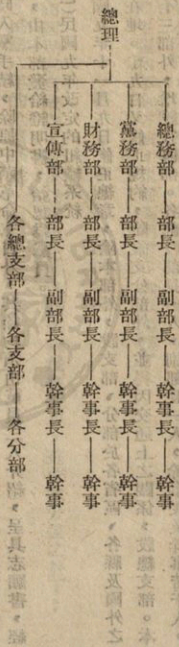 總理
總務部—部長—副部長—幹事長—幹事
黨務部—部長—副部長—幹事長—幹事
財務部—部長—副部長—幹事長—幹事
宣傳部—部長—副部長—幹事長—幹事
各總支部—各支部—各分部